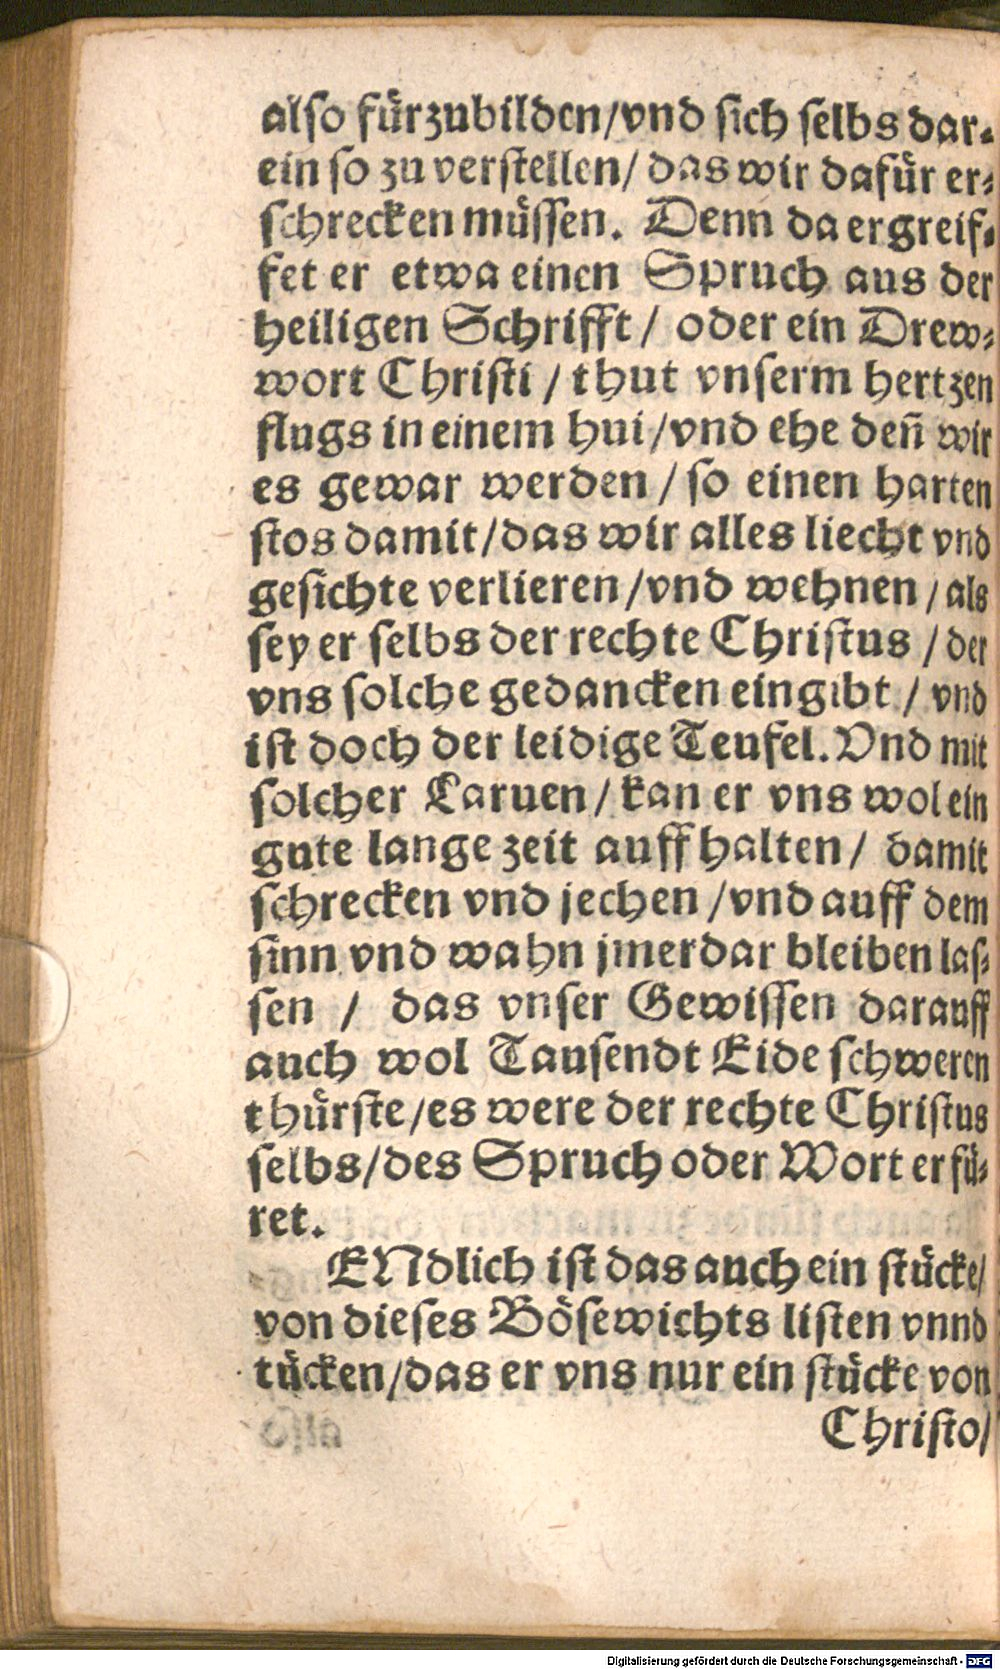 also fürzubilden/vnd sich selbs dar-
ein so zu verstellen/ das wir dafür er-
schrecken müssen. Denn da ergreif-
fet er etwa einen Spruch aus der
heiligen Schrifft/ oder ein Drew-
wort Christi / thut vnserm hertzen
flugs in einem hui/vnd ehe deñ wir
es gewar werden / so einen harten
stos damit/das wir alles liecht vnd
gesichte verlieren/vnd wehnen / als
sey er selbs der rechte Christus / der
vns solche gedancken eingibt / vnd
ist doch der leidige Teufel. Vnd mit
solcher Laruen/ kan er vns wol ein
gute lange zeit auffhalten/ damit
schrecken vnd jechen /vnd auff dem
sinn vnd wahn jmerdar bleiben las-
sen / das vnser Gewissen darauff
auch wol Tausendt Eide schweren
thürste/es were der rechte Christus
selbs/des Spruch oder Wort er fü-
ret.
ENdlich ist das auch ein stücke/
von dieses Bösewichts listen vnnd
tücken/das er vns nur ein stücke von
Christo/
Digitalisierung gefördert durch die Deutsche Forschungsgemeinschaft - DFG